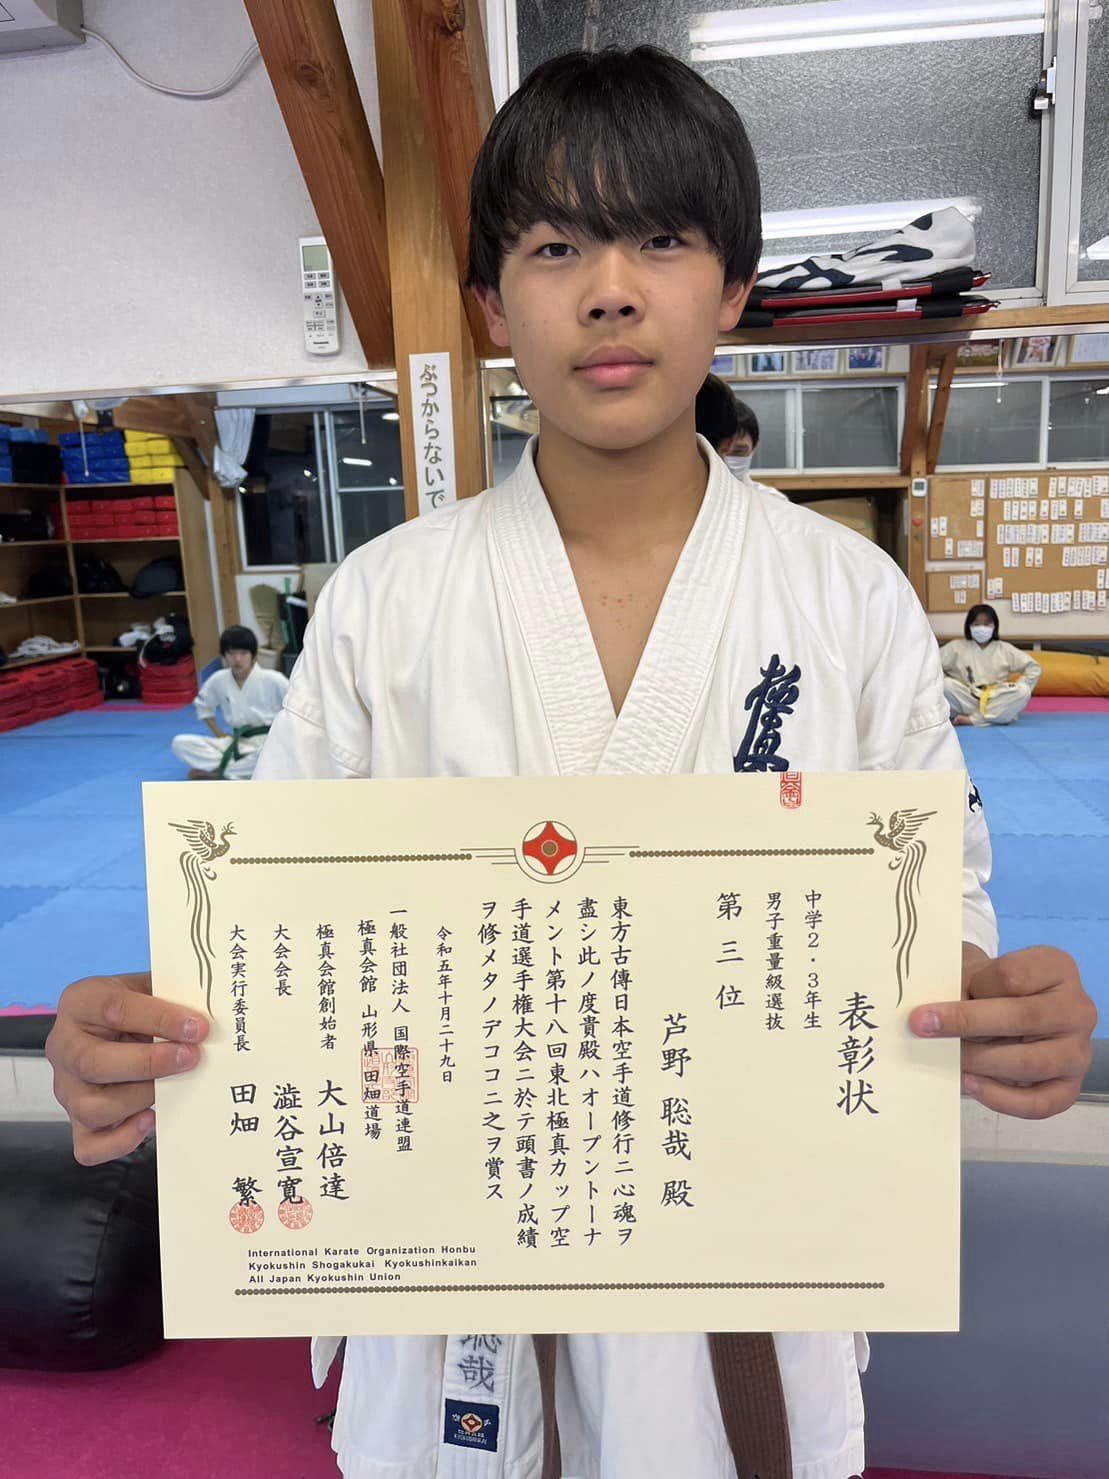 ぶつからないで
極真
表彰状
中学2・3年生
男子重量級選抜
第三位
芦野 聡哉 殿
東方古傳日本空手道修行ニ心魂ヲ
盡シ此ノ度貴殿ハオープントーナ
メント第十八回東北極真カップ空
手道選手権大会ニ於テ頭書ノ成績
ヲ修メタノデココニ之ヲ賞ス
令和五年十月二十九日
一般社団法人 国際空手道連盟
極真会館 山形県田畑道場
極真会館創始者 大山倍達
大会会長 澁谷宣寛
大会実行委員長 田畑 繁
International Karate Organization Honbu
Kyokushin Shogakukai Kyokushinkaikan
All Japan Kyokushin Union
聡哉